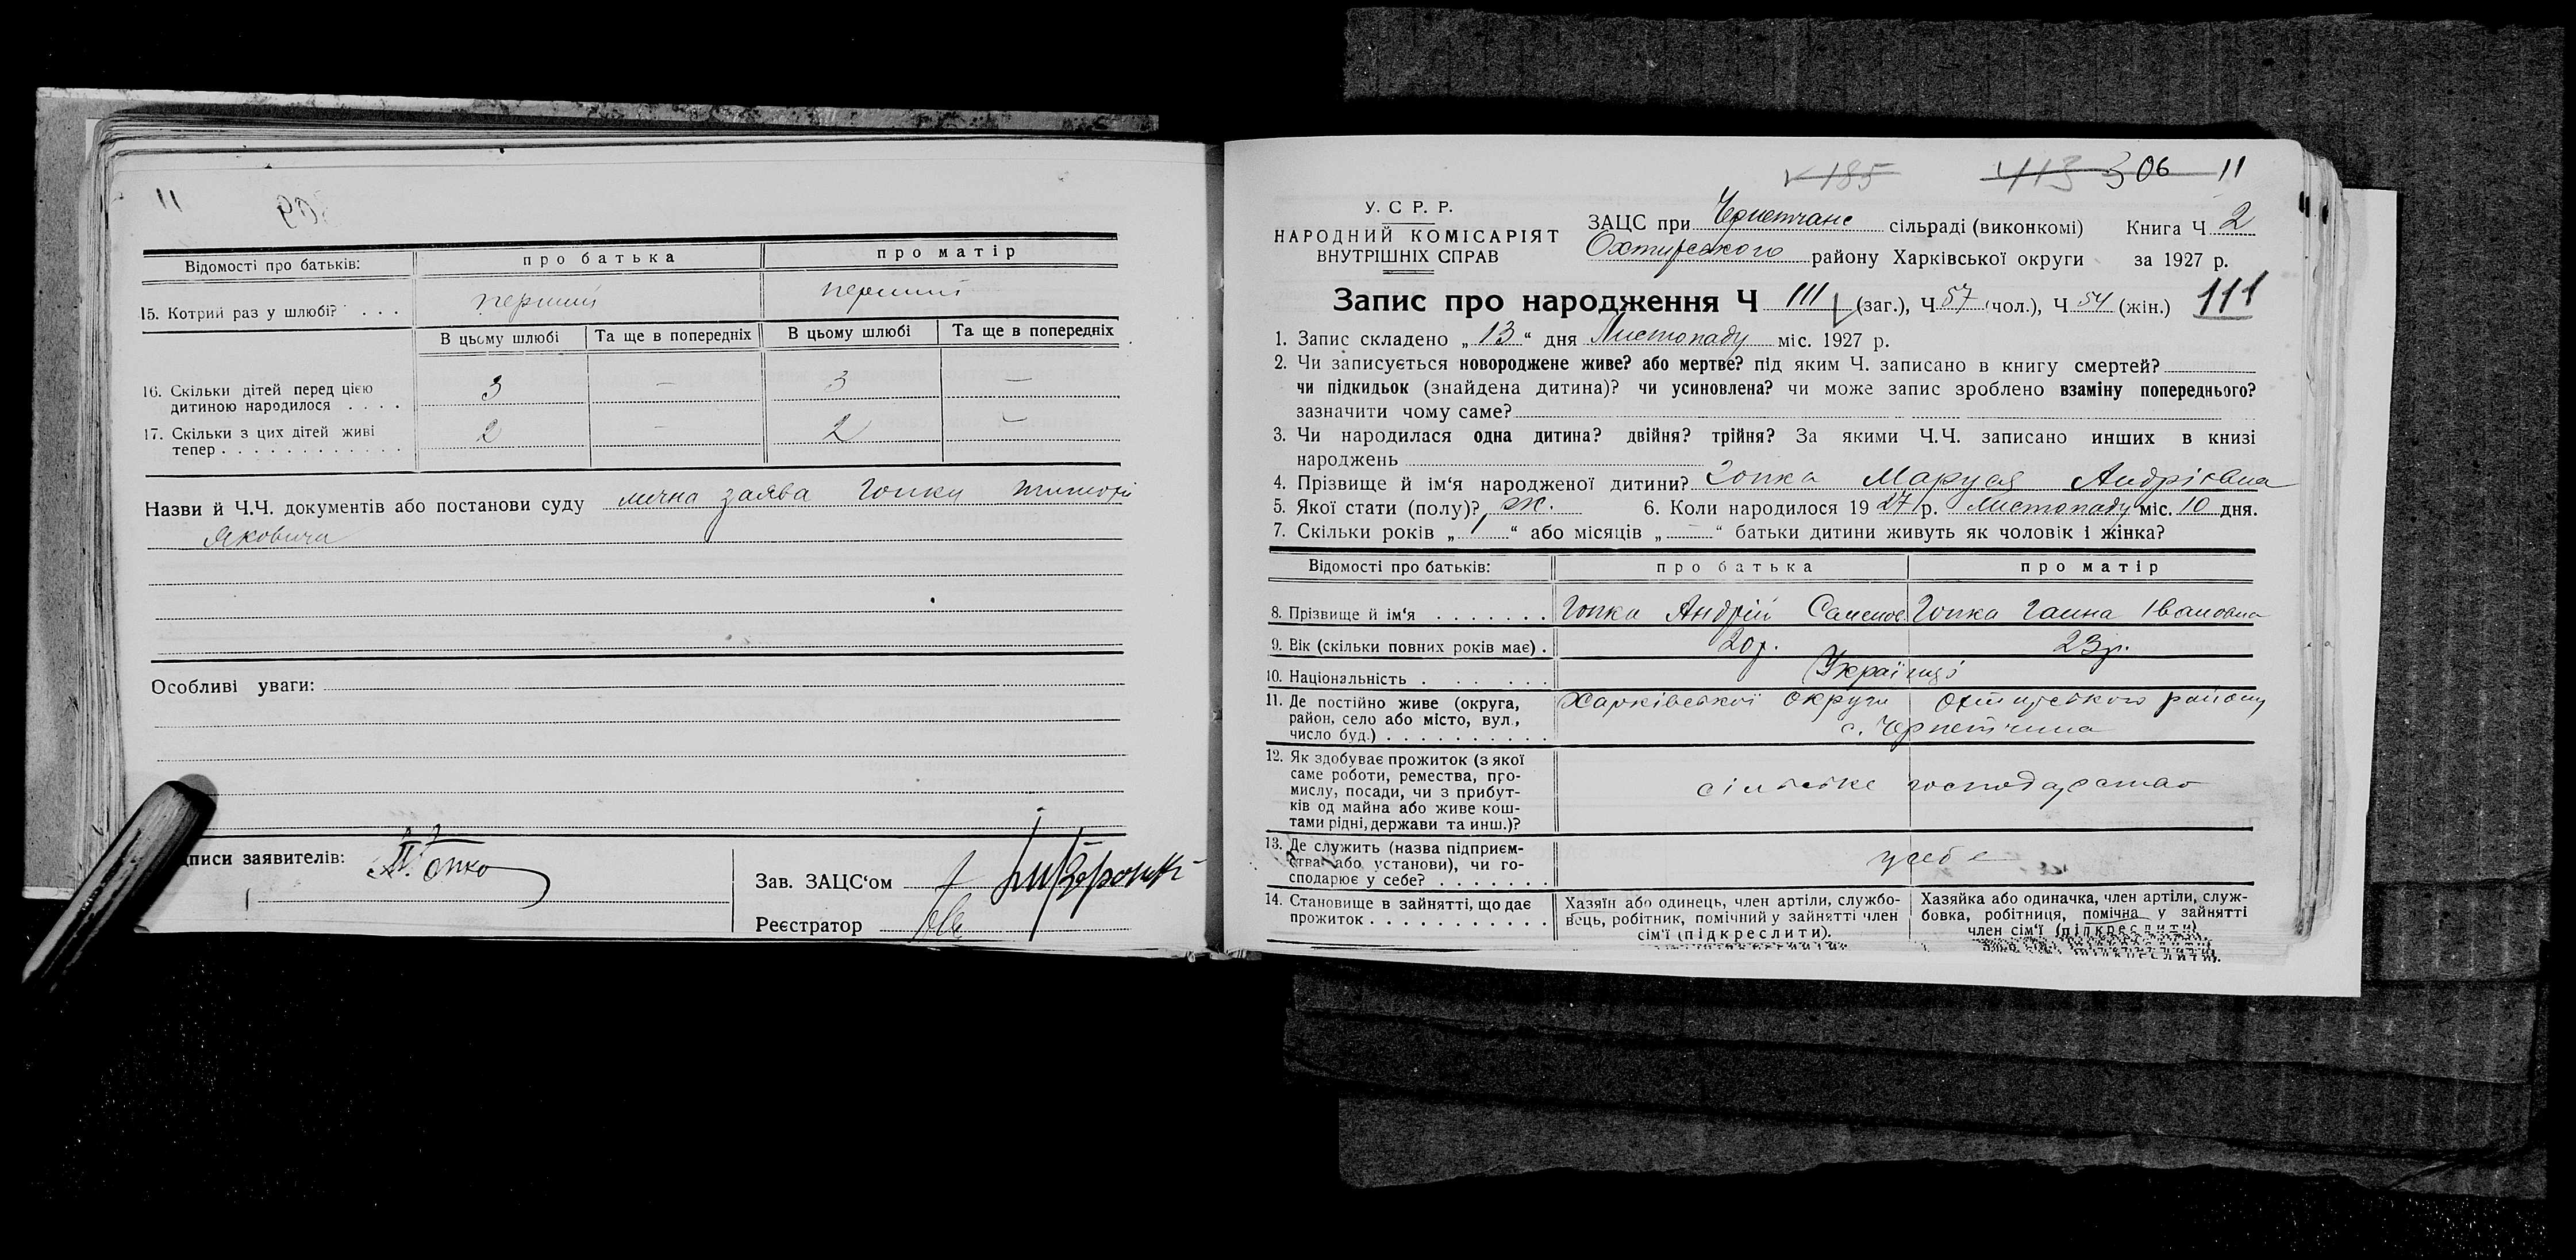 11
309
Відомості про батьків: про батька про матір
15. Котрий раз у шлюбі? . . . перший перший
В цьому шлюбі Та ще в попередніх В цьому шлюбі Та ще в попередніх
16. Скільки дітей перед цією
дитиною народилося . . . . 3 — 3 —
17. Скільки з цих дітей живі
тепер . . . . . . . . . . . . 2 — 2 —
Назви й Ч.Ч. документів або постанови суду лична заява Гопки
Яковича
Особливі уваги:
писи заявителів:
Зав. ЗАЦС‘ом
Реєстратор
185 413 306 11
У. С Р. Р.
НАРОДНИЙ КОМІСАРІЯТ
ВНУТРІШНІХ СПРАВ
ЗАЦС при Чернетчанс сільраді (виконкомі) Книга Ч 2
Охтирського району Харківської округи за 1927 р.
Запис про народження Ч 111 (заг.), Ч 57 (чол.), Ч 54 (жін.) 111
1. Запис складено „ 13 “ дня Листопаду міс. 1927 р.
2. Чи записується новороджене живе? або мертве? під яким Ч. записано в книгу смертей?
чи підкидьок (знайдена дитина)? чи усиновлена? чи може запис зроблено взаміну попереднього?
зазначити чому саме?
3. Чи народилася одна дитина? двійня? трійня? За якими Ч.Ч. записано инших в книзі
народжень
4. Прізвище й ім‘я народженої дитини? Гопка Маруся Андріївна
5. Якої стати (полу)? ж. 6. Коли народилося 19 27 р. Листопаду міс. 10 дня.
7. Скільки років „ “ або місяців „ — “ батьки дитини живуть як чоловік і жінка?
Відомості про батьків: про батька про матір
8. Прізвище й ім‘я . . . . . . . Гопка Андрій Гопка Ганна Івановна
9. Вік (скільки повних років має) . 20 р. 23 р.
10. Національність . . . . . Українці
11. Де постійно живе (округа, Харківської округи Охтирського району
район, село або місто, вул., с. Чернетчина
число буд.) . . . . . . . . . .
12. Як здобуває прожиток (з якої
саме роботи, ремества, про-
мислу, посади, чи з прибут- сільське господарство
ків од майна або живе кош-
тами рідні, держави та инш.)?
13. Де служить (назва підприєм-
ства або установи), чи го- у себе
сподарює у себе? . . . . . . .
14. Становище в зайнятті, що дає
прожиток . . . . . . . . . .
Хазяїн або одинець, член артіли, службо-
вець, робітник, помічний у зайнятті член
сім‘ї (підкреслити).
Хазяйка або одиначка, член артіли, служ-
бовка, робітниця, помічна у зайнятті
член сім‘ї (підкреслити)